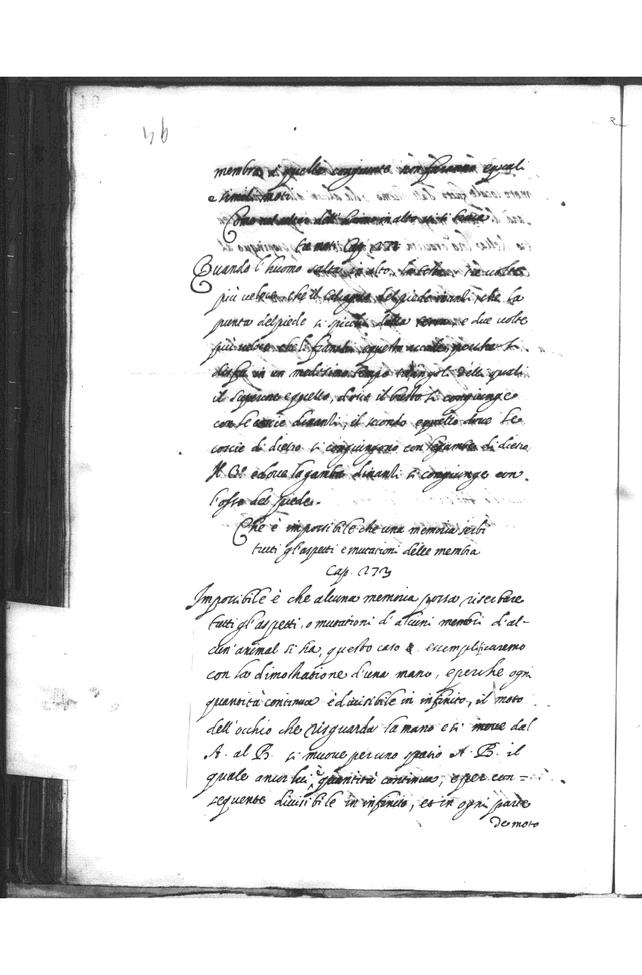 94
membra, à quelle congiunte non faranno equali
e simili moti
Come nel saltar dell'huomo in alto vi si trova
tre moti Cap. 272
Quando l'huomo salta in alto la testa tre volte
più veloce che il calcagno del piede inanti, che la
punta del piede si spicchi dalla terra, e due volte
più veloce che li fianchi
disfa in un medesimo tempo tre angoli delli quali
il superiore è quello, dove il busto si congiunge
con le coscie dinanti, il secondo è quello dove le
coscie di dietro si congiungono con le gambe di dietro
Il 3º è dove la gamba dinanti si congiunge con
l'osso del piede.
Che è impossibile che una memoria serbi
tutti gl'aspetti e mutationi delle membra
Cap. 273
Impossibile è che alcuna memoria possa riserbare
tutti gl'aspetti, o mutationi d'alcuni membri d'al-
cun animal si sia, questo caso essemplificaremo
con la dimostratione d'una mano, e perche ogni
quantità continua è divisibile in infinito, il moto
dell'occhio che risguarda la mano e si move dal
A. al B. si muove per uno spatio A. B. il
quale ancor lui è quantità continua, e per con=
sequente divisibile in infinito, et in ogni parte
de moto